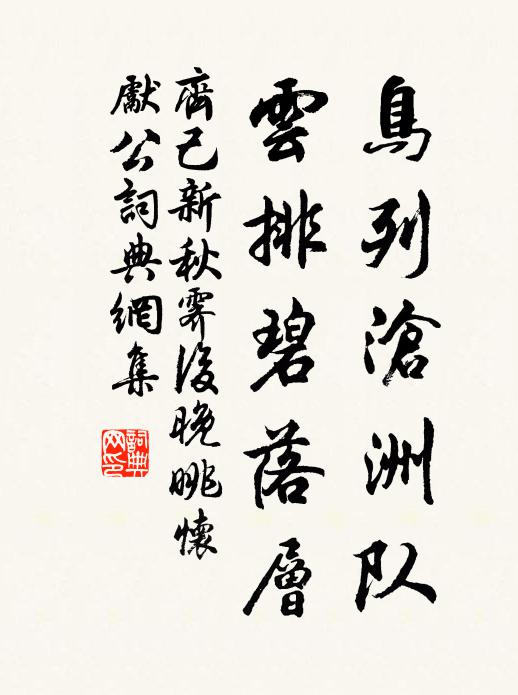 鳥列滄洲队
雲排碧落層
齊己新秋霽後晚眺懷
獻公詞典網集
詞典
网印